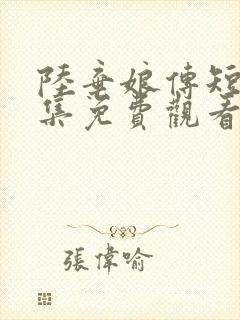 陸棄娘傳短
集免費觀看
張偉喻